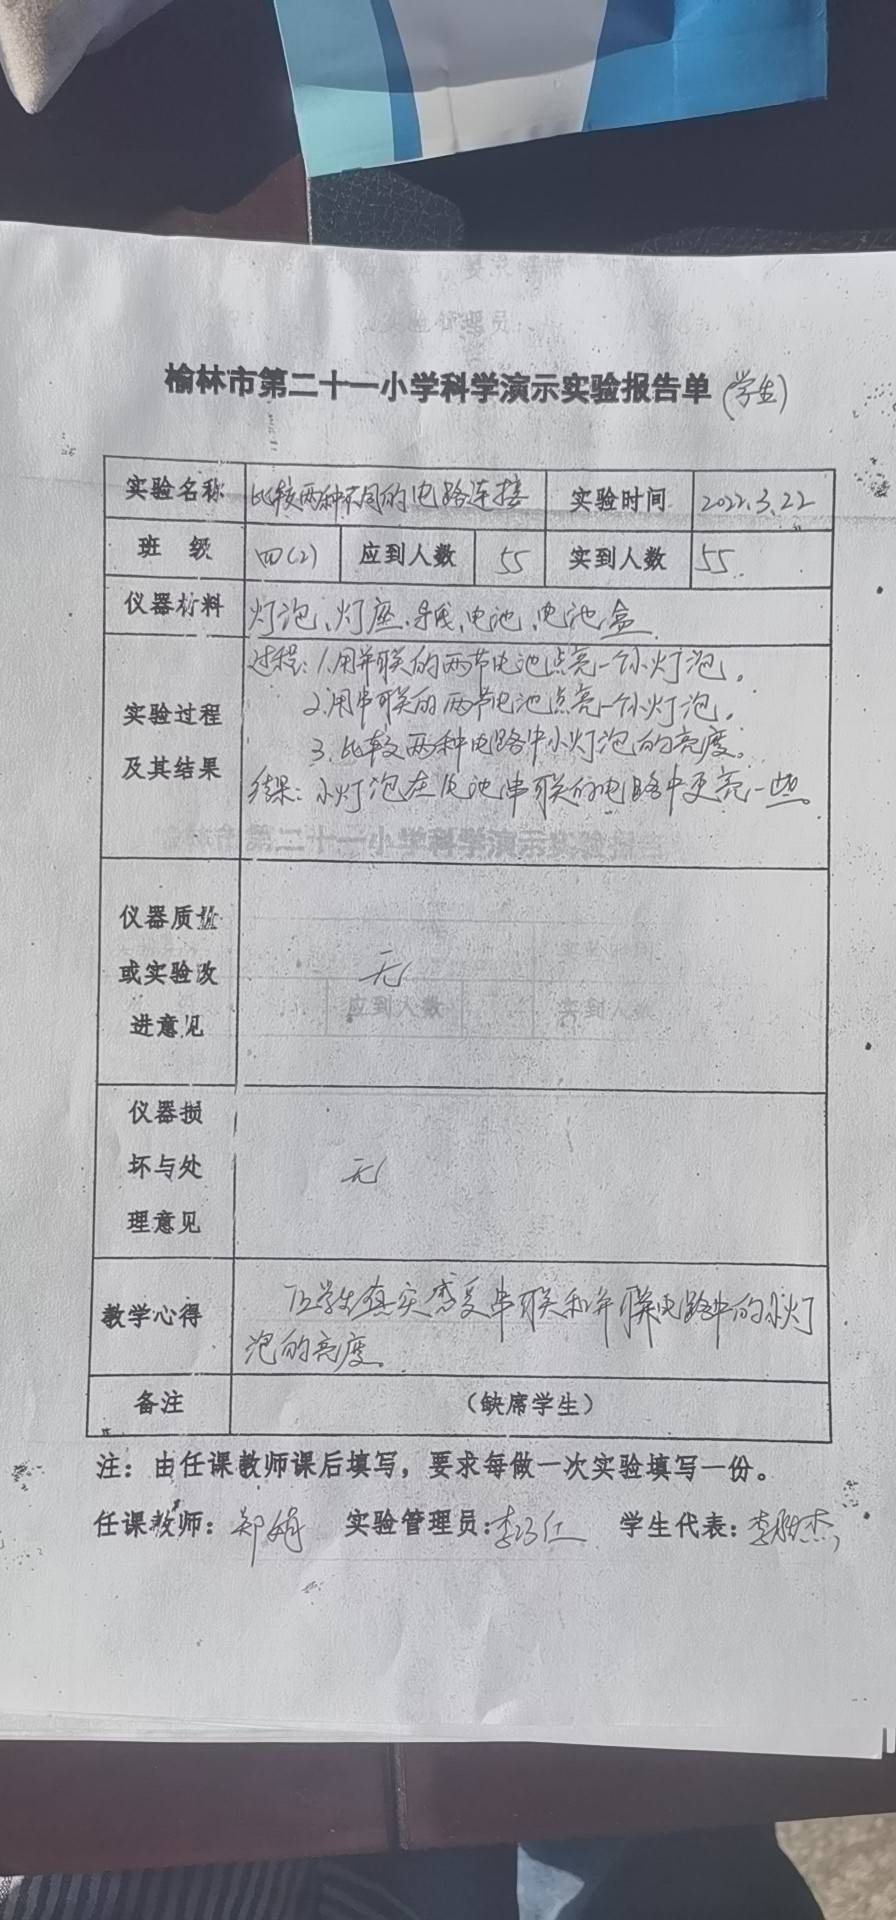 榆林市第二十一小学科学演示实验报告单 (学生)
实验名称 比较两种不同的电路连接 实验时间 2022.3.22
班 级 四(2) 应到人数 55 实到人数 55
仪器材料 灯泡、灯座、导线、电池、电池盒
过程: 1.用并联的两节电池点亮一个小灯泡。
2.用串联的两节电池点亮一个小灯泡。
实验过程
3.比较两种电路中小灯泡的亮度。
及其结果
结果: 小灯泡在电池串联的电路中更亮一些。
仪器质量
或实验改 无
进意见
仪器损
坏与处 无
理意见
教学心得 让学生真实感受串联和并联电路中的小灯
泡的亮度。
备注 (缺席学生)
注: 由任课教师课后填写, 要求每做一次实验填写一份。
任课教师: 郑娟 实验管理员: 学生代表: